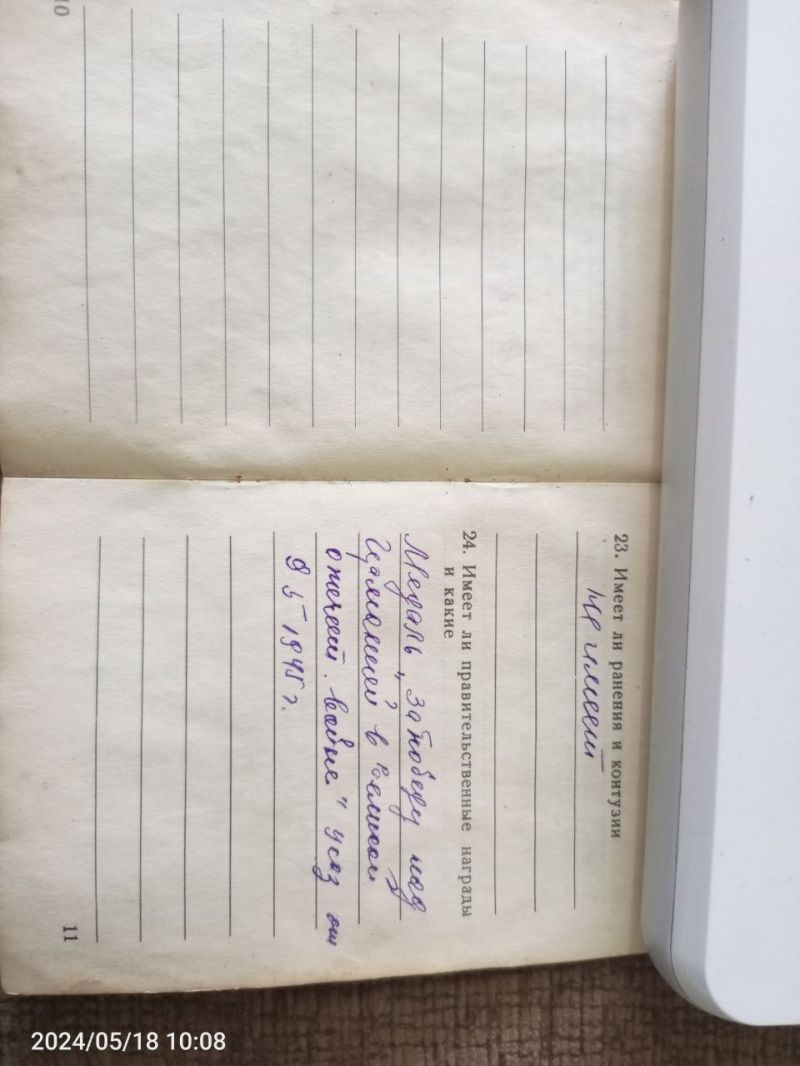 10
23. Имеет ли ранения и контузии
Не имеет
24. Имеет ли правительственные награды
и какие
Медаль „За победу над
Германией в Великой
отечест. войне" указ от
9 5 1945 г.
11
2024/05/18 10:08